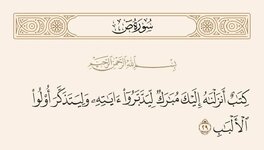 سُورَةُ صٓ
بِسْمِ ٱللَّهِ ٱلرَّحْمَٰنِ ٱلرَّحِيمِ
كِتَٰبٌ أَنزَلْنَٰهُ إِلَيْكَ مُبَٰرَكٌ لِّيَدَّبَّرُوٓا۟ ءَايَٰتِهِۦ وَلِيَتَذَكَّرَ أُو۟لُوا۟
ٱلْأَلْبَٰبِ ٢٩